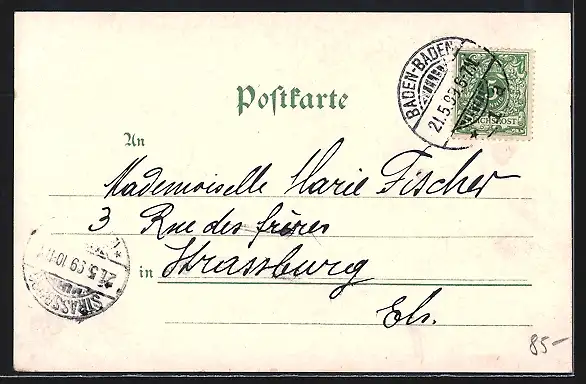 Postkarte
BADEN-BADEN
21.5.99.6-7N.
REICHSPOST
5
An
Mademoiselle Marie Fischer
3 Rue des frères
in Strassburg
Els.
STRASSBURG
21.5.99.10-11
85-